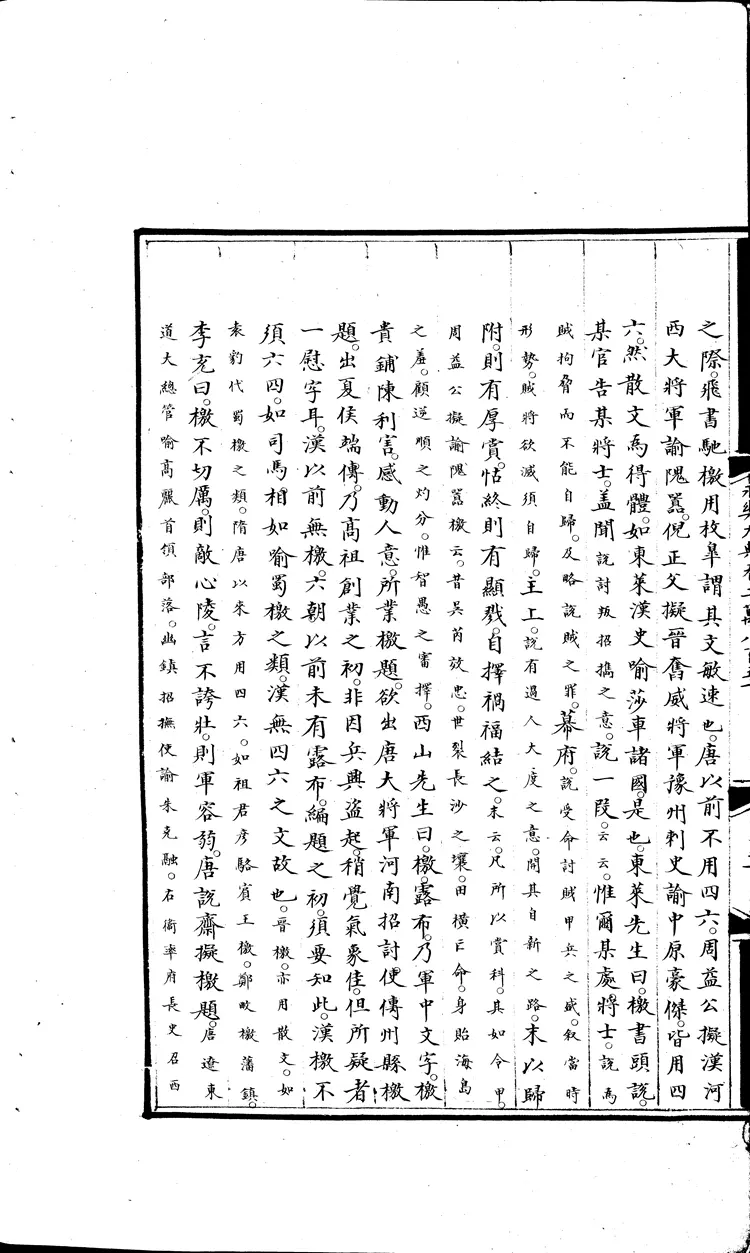 之際。飛書馳檄用枚臯。謂其文敏速也。唐以前不用四六。周益公擬漢河
西大將軍諭隗囂。倪正父擬晉奮威將軍豫州刺史諭中原豪傑。皆用四
六。然散文為得體。如東萊漢史喻莎車諸國。是也。東萊先生曰。檄書頭說。
某官告某將士。蓋聞說討叛招擕之意。說一段。云云。惟爾某處將士。說為
賊拘脅而不能自歸。及略說賊之罪。幕府。說受命討賊甲兵之盛。叙當時
形勢。賊將欲滅須自歸。主上。說有過人大度之意。開其自新之路。末以歸
附。則有厚賞。怙終則有顯戮。自擇禍福結之。末云。凡所以賞科。其如令甲。
周益公擬諭隗囂檄云。昔吳芮效忠。世裂長沙之壤。田橫亡命。身貽海島
之羞。顧逆順之灼分。惟智愚之審擇。西山先生曰。檄。露布。乃軍中文字。檄
貴鋪陳利害。感動人意。所業檄題。欲出唐大將軍河南招討使傳州縣檄
題。出夏侯端傳。乃高祖創業之初。非因兵興盜起。稍覺氣象佳。但所疑者
一慰字耳。漢以前無檄。六朝以前未有露布。編題之初。須要知此。漢檄不
須六四。如司馬相如喻蜀檄之類。漢無四六之文故也。晉檄。亦用散文。如
袁豹代蜀檄之類。隋唐以來方用四六。如祖君彥駱賓王檄。鄭畋檄藩鎮。
李充曰。檄不切厲。則敵心陵。言不誇壯。則軍容弱。唐說齋擬檄題。唐遼東
道大總管喻高麗首領部落。幽鎮招撫使諭朱克融。右衛率府長史召西